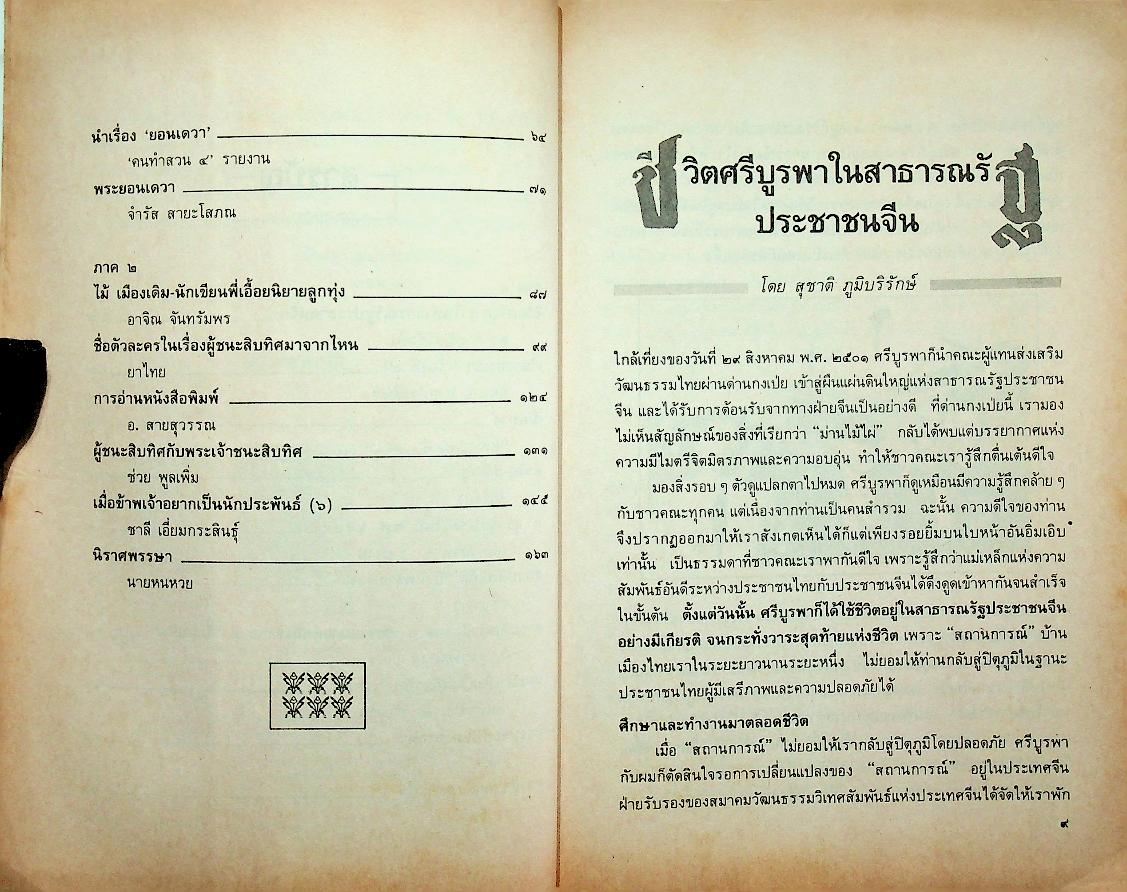 นำเรื่อง ‘ยอนเดวา’ ๖๔
‘คนทำสวน ๔’ รายงาน
พระยอนเดวา ๗๑
จำรัส สายะโสภณ
ภาค ๒
ไม้ เมืองเดิม-นักเขียนพี่เอื้อยนิยายลูกทุ่ง ๘๗
อาจิณ จันทรัมพร
ชื่อตัวละครในเรื่องผู้ชนะสิบทิศมาจากไหน ๙๙
ยาไทย
การอ่านหนังสือพิมพ์ ๑๒๔
อ. สายสุวรรณ
ผู้ชนะสิบทิศกับพระเจ้าชนะสิบทิศ ๑๓๑
ช่วย พูลเพิ่ม
เมื่อข้าพเจ้าอยากเป็นนักประพันธ์ (๖) ๑๔๕
ชาลี เอี่ยมกระสินธุ์
นิราศพรรษา ๑๖๓
นายหนหวย
ชีวิตศรีบูรพาในสาธารณรัฐ
ประชาชนจีน
โดย สุชาติ ภูมิบริรักษ์
ใกล้เที่ยงของวันที่ ๒๙ สิงหาคม พ.ศ. ๒๕๐๑ ศรีบูรพาก็นำคณะผู้แทนส่งเสริม
วัฒนธรรมไทยผ่านด่านกงเป่ย เข้าสู่ผืนแผ่นดินใหญ่แห่งสาธารณรัฐประชาชน
จีน และได้รับการต้อนรับจากทางฝ่ายจีนเป็นอย่างดี ที่ด่านกงเป่ยนี้ เรามอง
ไม่เห็นสัญลักษณ์ของสิ่งที่เรียกว่า “ม่านไม้ไผ่” กลับได้พบแต่บรรยากาศแห่ง
ความมีไมตรีจิตมิตรภาพและความอบอุ่น ทำให้ชาวคณะเรารู้สึกตื่นเต้นดีใจ
มองสิ่งรอบ ๆ ตัวดูแปลกตาไปหมด ศรีบูรพาก็ดูเหมือนมีความรู้สึกคล้าย ๆ
กับชาวคณะทุกคน แต่เนื่องจากท่านเป็นคนสำรวม ฉะนั้น ความดีใจของท่าน
จึงปรากฏออกมาให้เราสังเกตเห็นได้ก็แต่เพียงรอยยิ้มบนใบหน้าอันอิ่มเอิบ
เท่านั้น เป็นธรรมดาที่ชาวคณะเราพากันดีใจ เพราะรู้สึกว่าแม่เหล็กแห่งความ
สัมพันธ์อันดีระหว่างประชาชนไทยกับประชาชนจีนได้ดึงดูดเข้าหากันจนสำเร็จ
ในขั้นต้น ตั้งแต่วันนั้น ศรีบูรพาก็ได้ใช้ชีวิตอยู่ในสาธารณรัฐประชาชนจีน
อย่างมีเกียรติ จนกระทั่งวาระสุดท้ายแห่งชีวิต เพราะ “สถานการณ์” บ้าน
เมืองไทยเราในระยะยาวนานระยะหนึ่ง ไม่ยอมให้ท่านกลับสู่ปิตุภูมิในฐานะ
ประชาชนไทยผู้มีเสรีภาพและความปลอดภัยได้
ศึกษาและทำงานมาตลอดชีวิต
เมื่อ “สถานการณ์” ไม่ยอมให้เรากลับสู่ปิตุภูมิโดยปลอดภัย ศรีบูรพา
กับผมก็ตัดสินใจรอการเปลี่ยนแปลงของ “สถานการณ์” อยู่ในประเทศจีน
ฝ่ายรับรองของสมาคมวัฒนธรรมวิเทศสัมพันธ์แห่งประเทศจีนได้จัดให้เราพัก
๙